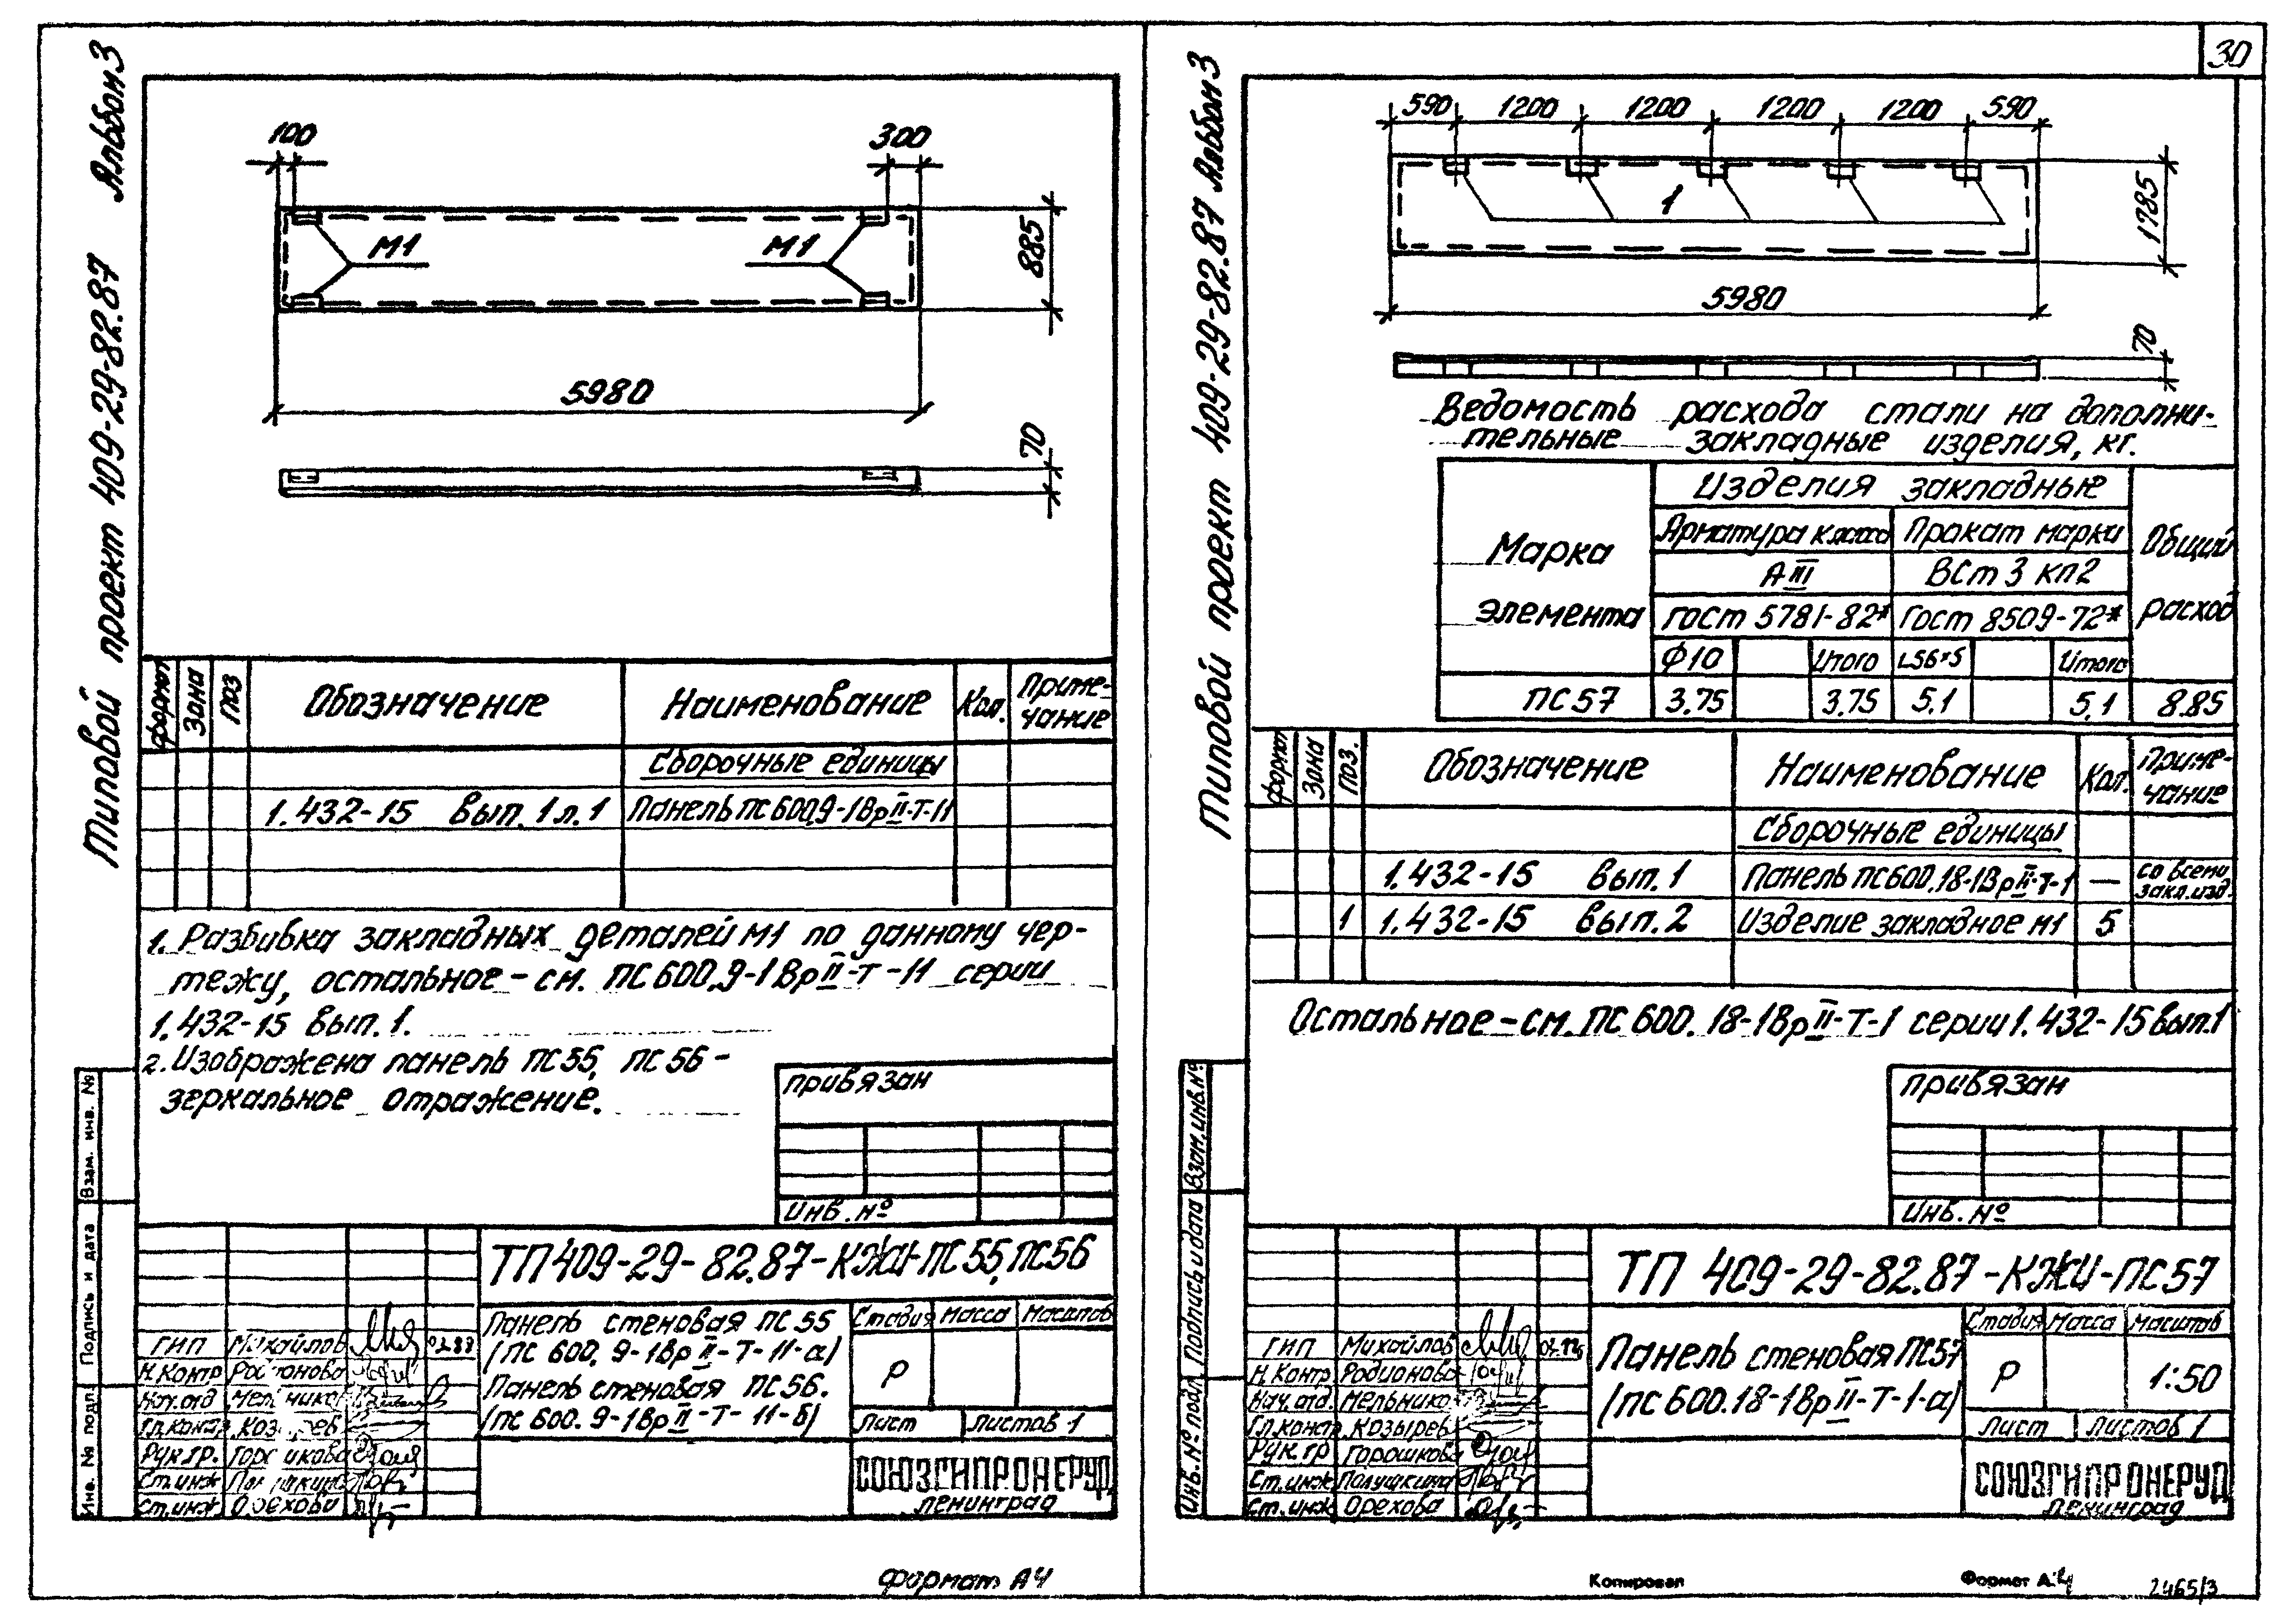 30
Типовой проект 409-29-82.87 Альбом 3
100
300
М1
М1
885
5980
70
формат
Зона
Поз
Обозначение
Наименование
Кол.
Приме-
чание
Сборочные единицы
1.432-15 вып. 1 л. 1
Панель ПС 600.9-1ВрII-Т-11
1. Разбивка закладных деталей М1 по данному чер-
тежу, остальное - см. ПС 600.9-1ВрII-Т-11 серии
1.432-15 вып. 1.
2. Изображена панель ПС 55, ПС 56 -
зеркальное отражение.
привязан
Инв. №
Взам. инв. №
Подпись и дата
Инв. № подл.
ТП 409-29-82.87-КЖИ-ПС 55, ПС 56
Панель стеновая ПС 55
(ПС 600. 9-1ВрII-Т-11-а)
Панель стеновая ПС 56.
(ПС 600. 9-1ВрII-Т-11-б)
Стадия Масса Масштаб
Р
Лист Листов 1
ГИП Михайлов
Н.Контр Родионова
Нач.отд Мельников
Гл.констр. Козырев
Рук.гр. Горошкова
Ст.инж
Ст.инж Орехова
СОЮЗГИПРОНЕРУД
Ленинград
Формат А4
Типовой проект 409-29-82.87 Альбом 3
590 1200 1200 1200 1200 590
1
1785
5980
70
Ведомость расхода стали на дополни-
тельные закладные изделия, кг.
Марка
элемента
Изделия закладные
Арматура класса
АIII
ГОСТ 5781-82*
Прокат марки
ВСт 3 кп2
ГОСТ 8509-72*
Общий
расход
Ф10 Итого L56×5 Итого
ПС 57 3.75 3.75 5.1 5.1 8.85
формат
Зона
Поз.
Обозначение
Наименование
Кол.
Приме-
чание
Сборочные единицы
1.432-15 вып. 1 Панель ПС 600.18-1ВрII-Т-1 — со всеми
закл.изд.
1 1.432-15 вып. 2 Изделие закладное М1 5
Остальное - см. ПС 600. 18-1ВрII-Т-1 серии 1.432-15 вып.1
привязан
Инв. №
Взам.инв.№
Подпись и дата
Инв.№ подл.
ТП 409-29-82.87-КЖИ-ПС57
Панель стеновая ПС57
(ПС 600.18-1ВрII-Т-1-а)
Стадия Масса Масштаб
Р 1:50
Лист Листов 1
ГИП Михайлов
Н.Контр. Родионова
Нач.отд. Мельников
Гл.констр. Козырев
Рук.гр Горошкова
Ст.инж Полушкина
Ст.инж Орехова
СОЮЗГИПРОНЕРУД
Ленинград
Копировал
Формат А4
2465/3